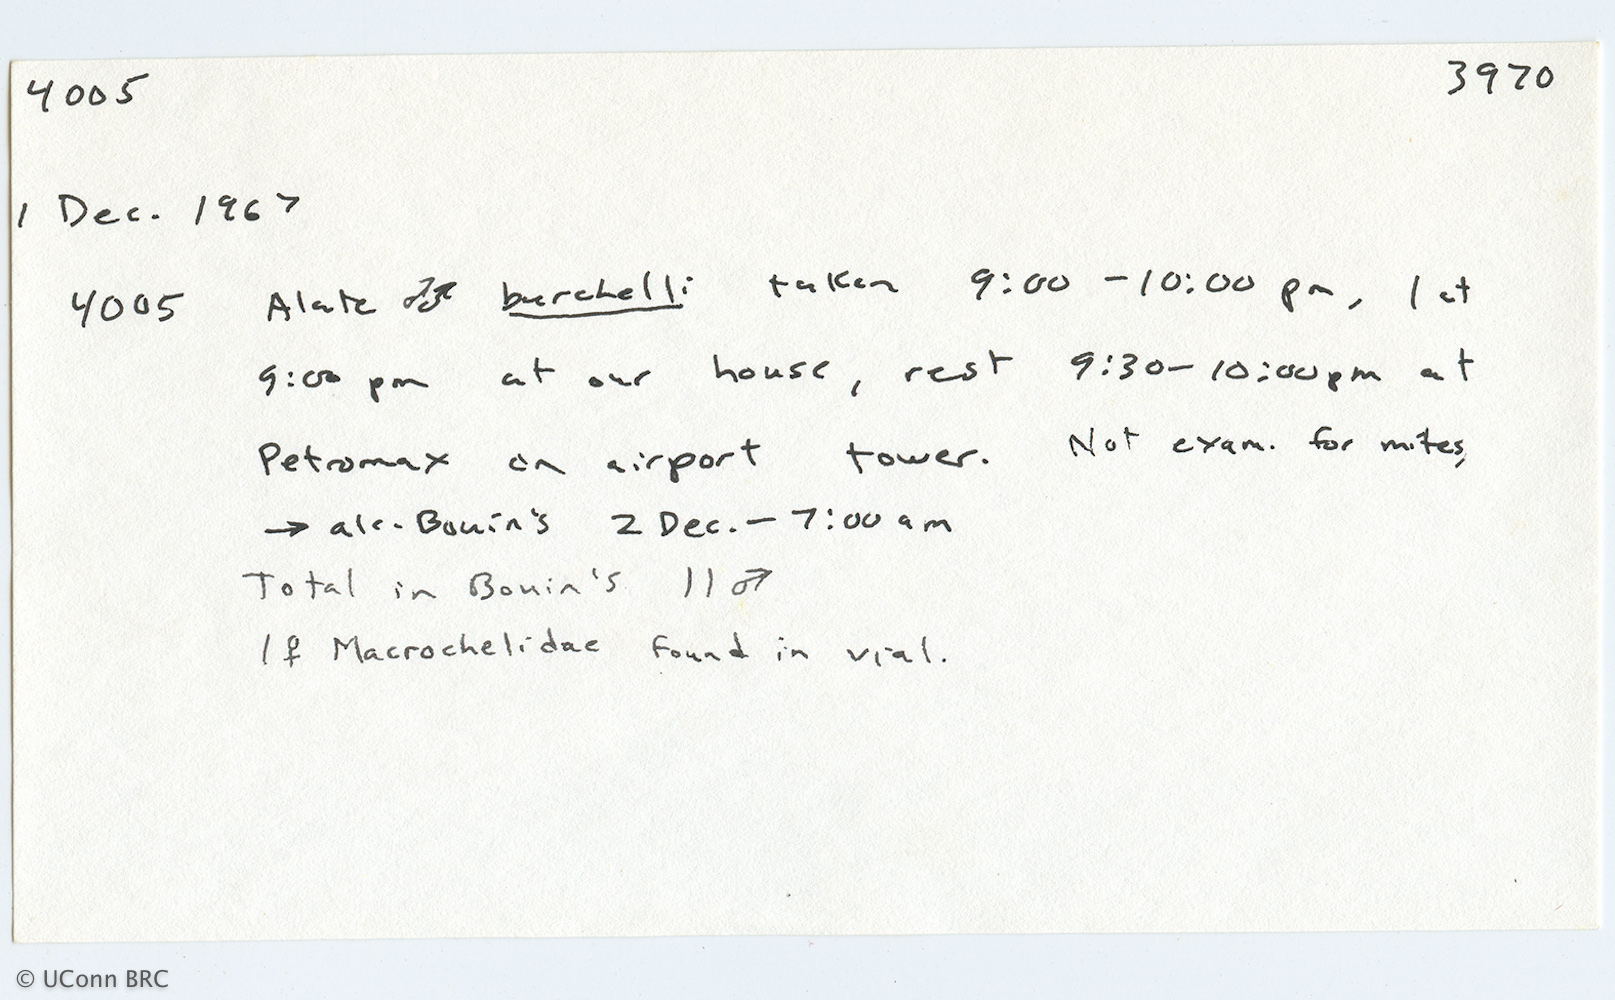 4005 3970
1 Dec. 1967
4005 Alate ♂♂ burchelli taken 9:00 - 10:00 pm, 1 at
9:00 pm at our house, rest 9:30 - 10:00 pm at
Petromax on airport tower. Not exam. for mites,
→ alc. Bouin's 2 Dec. - 7:00 am
Total in Bouin's 11 ♂
1 ♀ Macrochelidae found in vial.
© UConn BRC